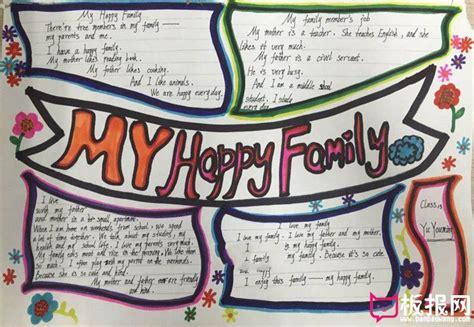 My Happy Family
There're tree members in my family
my parents and me.
I have a happy family.
My mother likes reading book.
My father likes cooking.
And I like animals.
We are happy every day.
My family member's job
My mother is a teacher. She teaches English, and she
likes it very much.
My father is a civil servant.
He is very busy.
And I am a middle school
student. I study
every day.
MY Happy Family
I live
with my father
and mother in a small apartment.
When I am home on weekends from school, we spend
a lot of time together. We talk about my studies, my
and my school life. I love my parents very much.
My family eats meat and rice in the
so much. I often my parent on the weekends.
Because she is so cute and kind.
My mother and father are friendly
and kind.
I love my family
I love my family. I love my father and my mother.
is my happy family.
my family. Because it's so cute
and kind.
I enjoy this family my happy family.
Class
Yu Youming
板报网
www.banbaowang.com